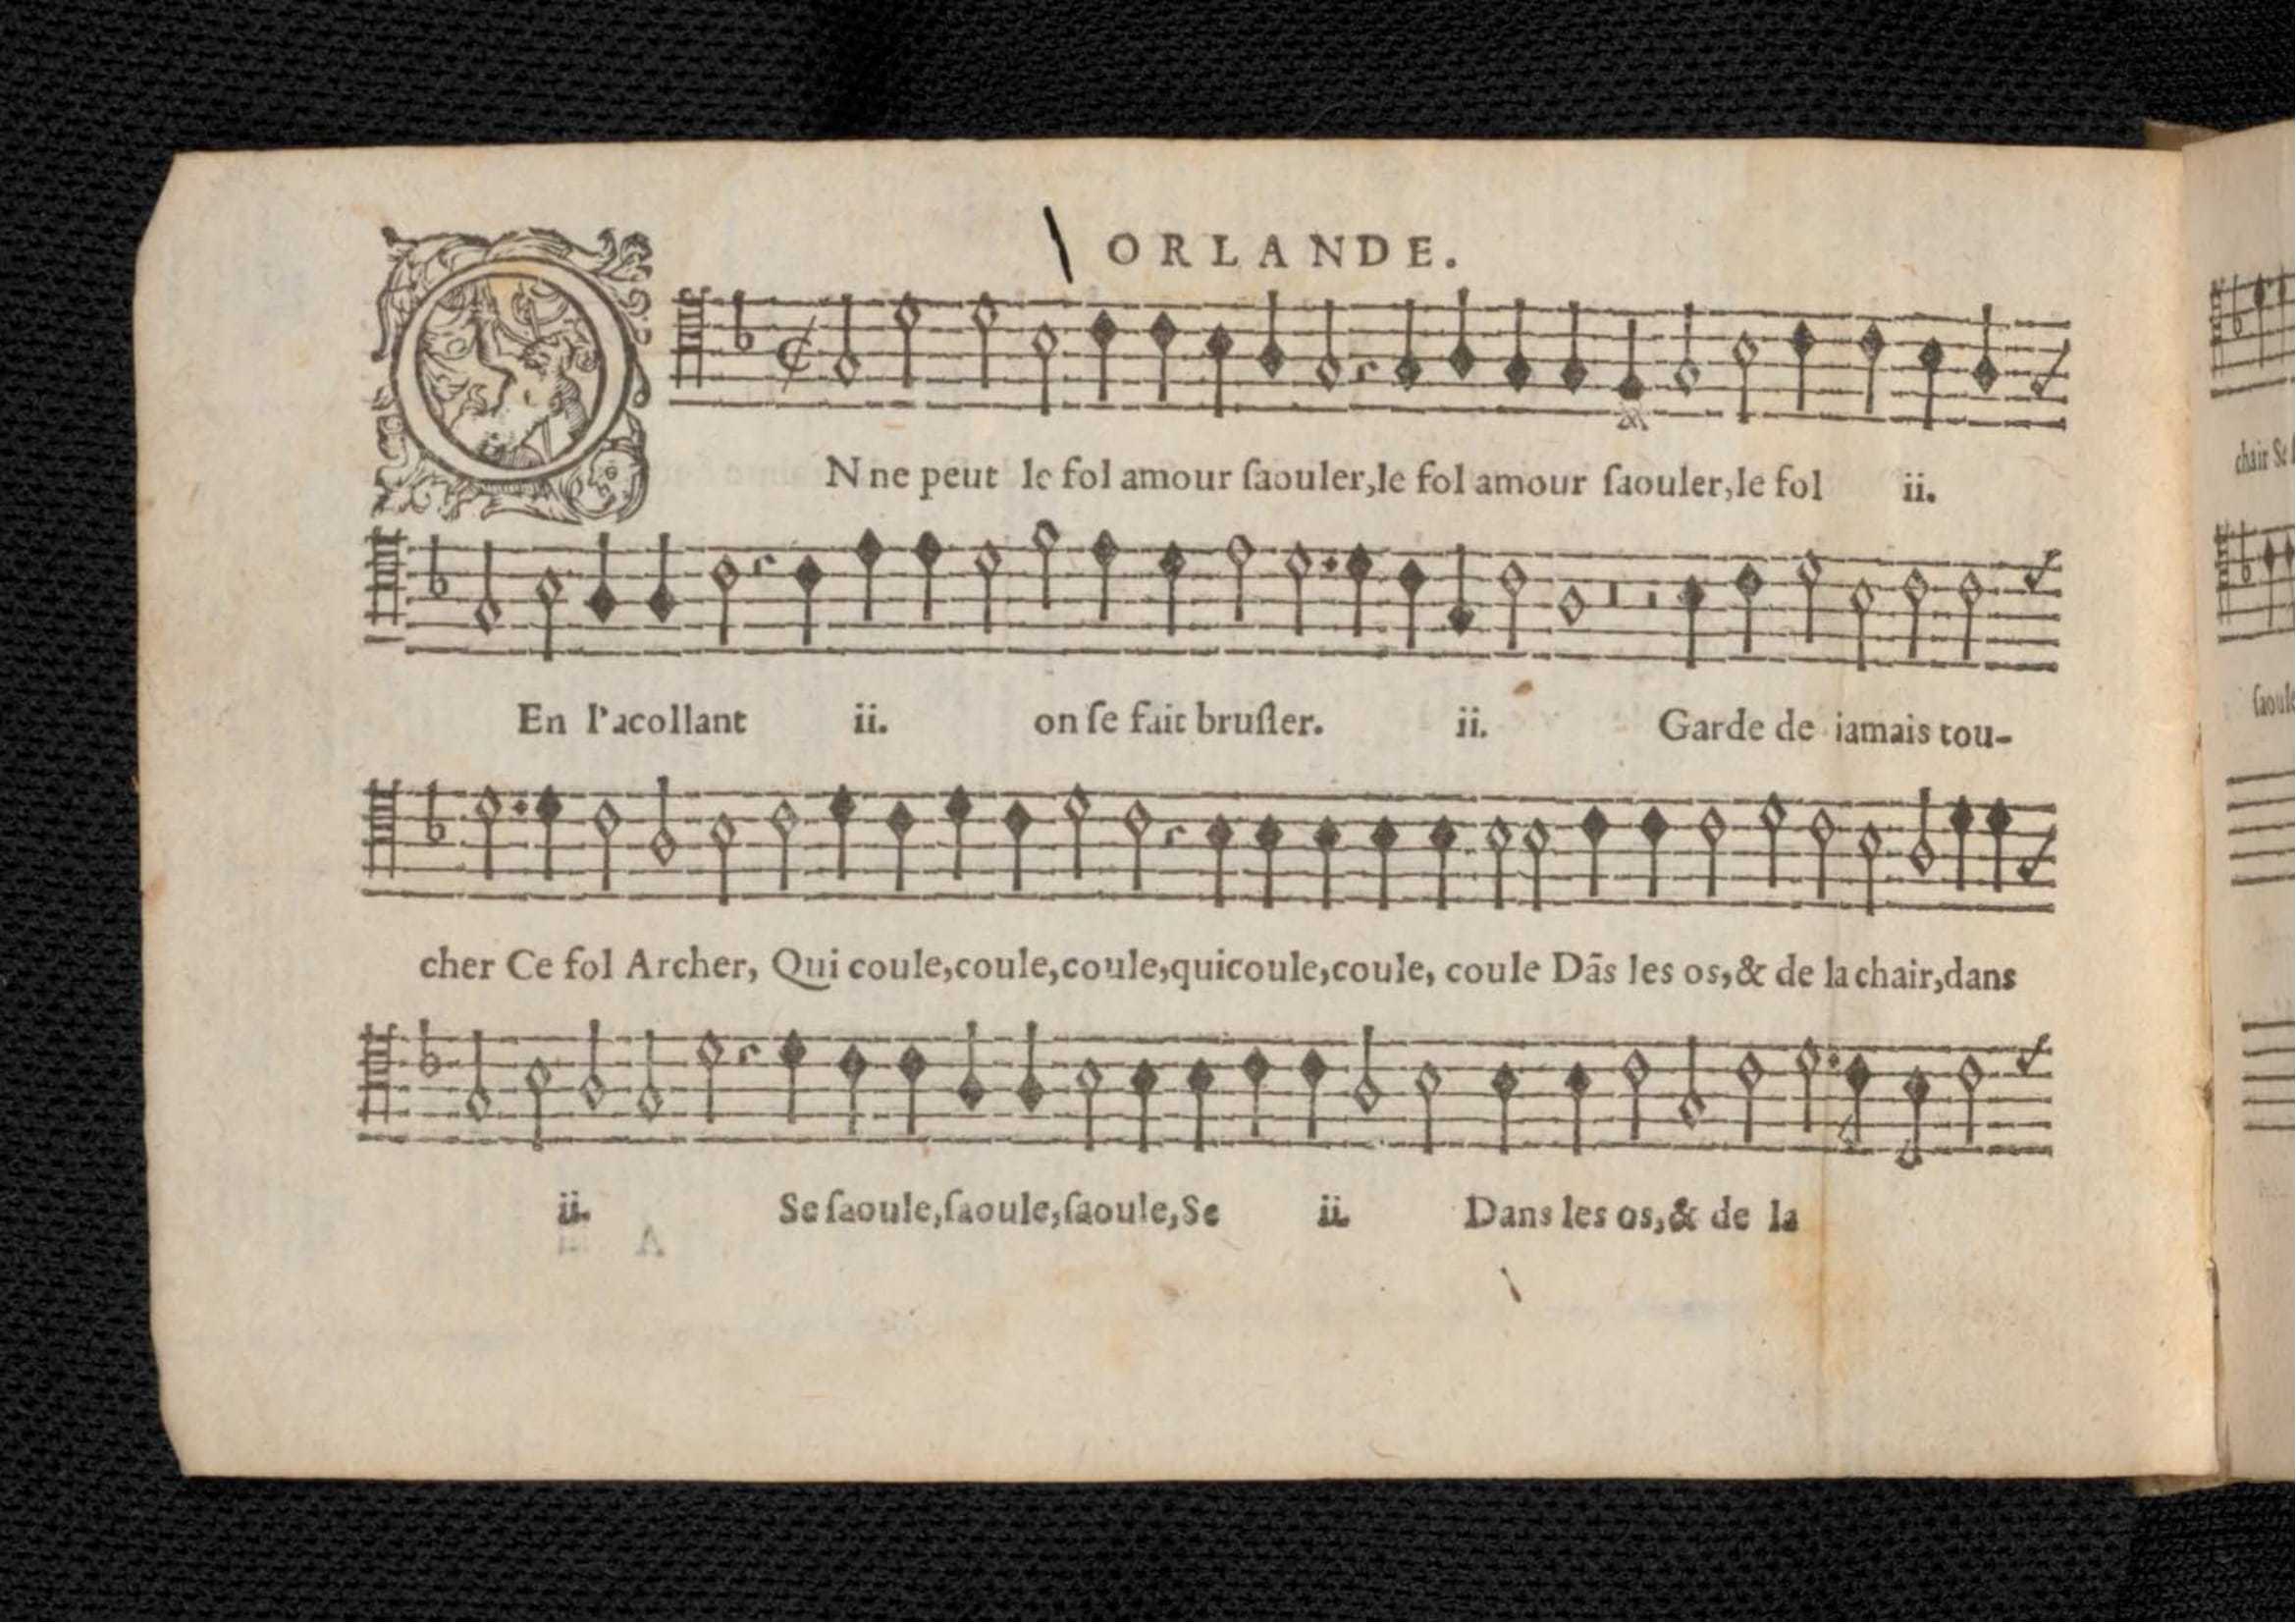 ORLANDE.
ON ne peut le fol amour ſaouler,le fol amour ſaouler,le fol ii.
En l'acollant ii. on ſe fait bruſler. ii. Garde de iamais tou-
cher Ce fol Archer, Qui coule,coule,coule,quicoule,coule, coule Dãs les os,& de la chair,dans
ii. Se ſaoule,ſaoule,ſaoule,Se ii. Dans les os,& de la
chair Se
ſaoule